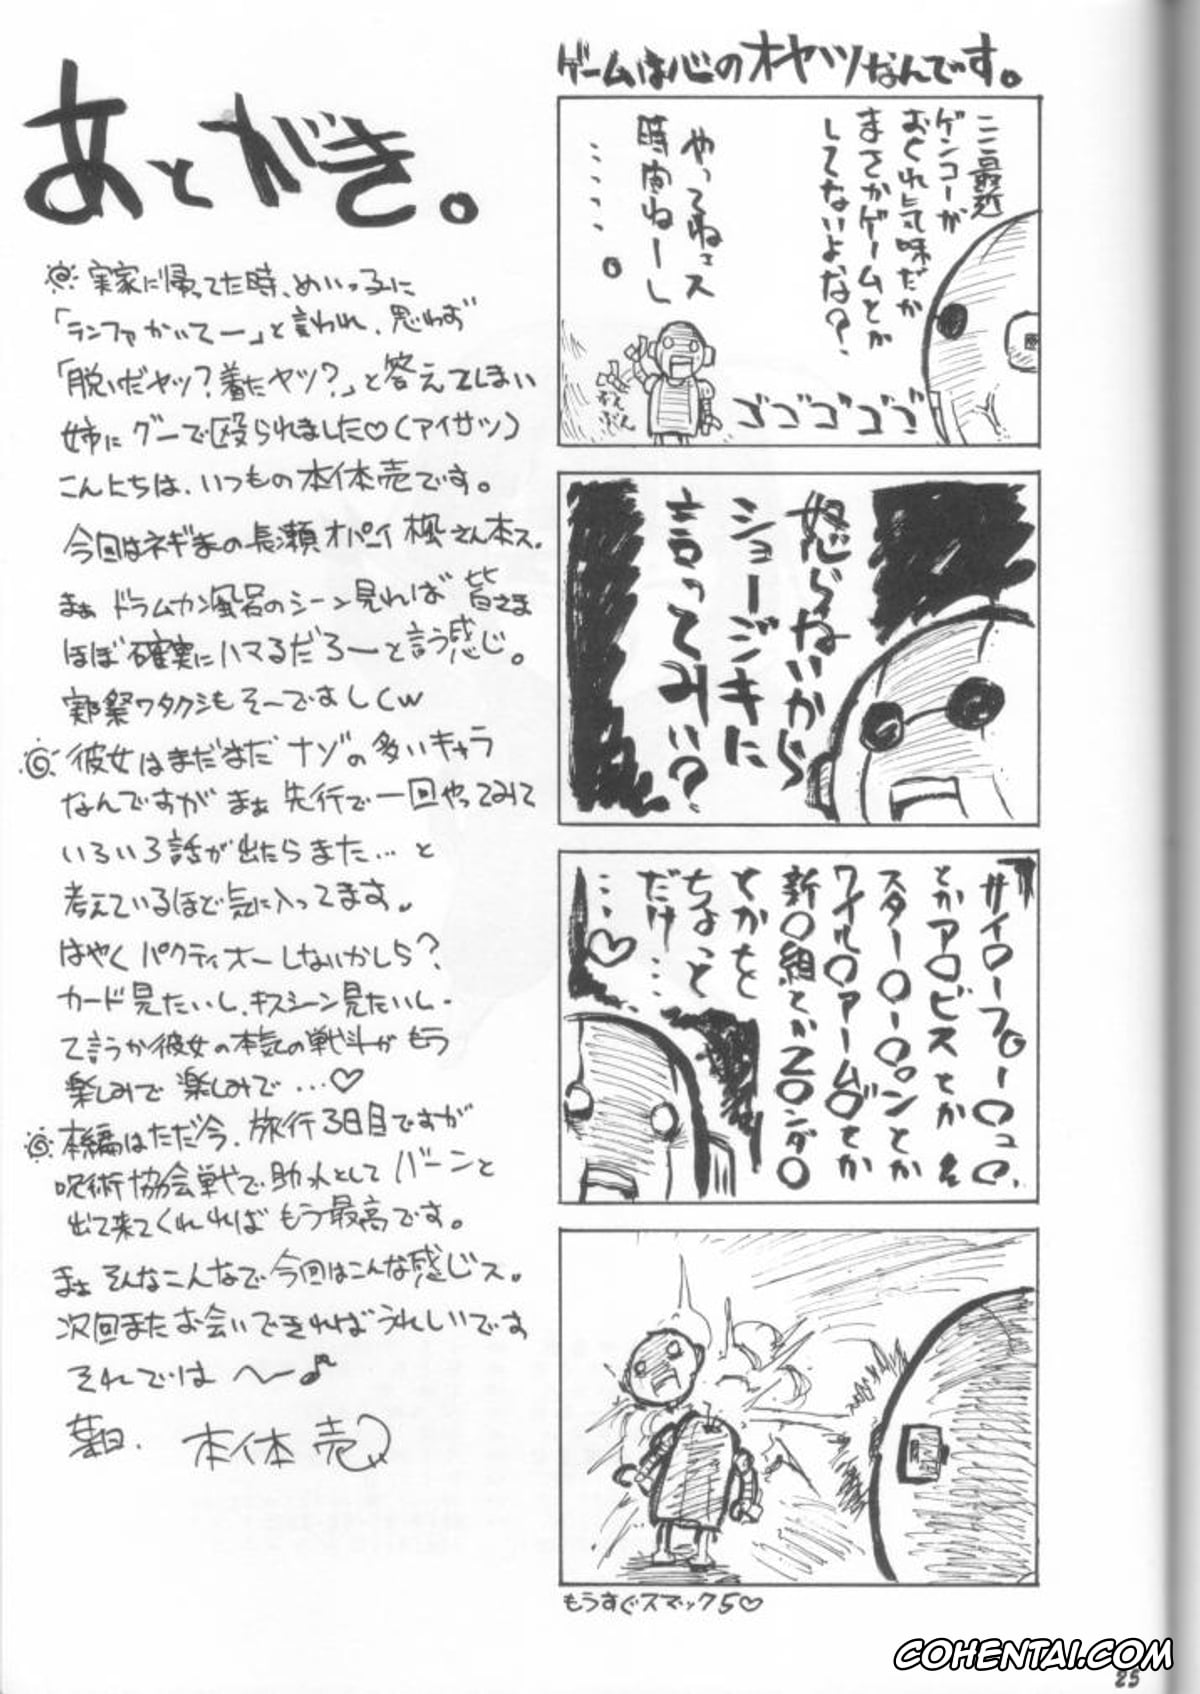 ゲームは心のオヤツなんです。
ここ最近
ゲンコーが
おくれ気味だが
まさかゲームとか
してないよな?
ゴゴゴゴゴ
やってねェス
時間ねーし
・・・・・。
ぶんぶん
怒らないから
ショージキに
言ってみい?
サイ〇ーフ〇ー〇ユ〇、
とかア〇ビスとか
スター〇ー〇ンとか
ワイル〇アーム〇とか
新〇組とかZ〇ンダ〇
とかをと
ちょっと
だけ…
…♡
もうすぐスマック5♡
あとがき。
実家に帰ってた時、めいっ子に
「ランファかいてー」と言われ、思わず
「脱いだヤツ?着たヤツ?」と答えてしまい
姉にグーで殴られました♡(アイサツ)
こんにちは、いつもの本体売です。
今回はネギまの長瀬オパーイ楓さん本ス。
まぁドラムカン風呂のシーン見れば皆さま
ほぼ確実にハマるだろーと言う感じ。
実祭ワタクシもそーでましくw
彼女はまだまだナゾの多いキャラ
なんですがまぁ先行で一回やってみて
いろいろ話が出たらまた…と
考えているほど気に入ってます。
はやくパクティオーしないかしら?
カード見たいし、キスシーン見たいし・
て言うか彼女の本気の戦斗がもう
楽しみで楽しみで…♡
本編はただ今、旅行3日目ですが
呪術協会戦で助っ人としてバーンと
出て来てくれればもう最高です。
まぁそんなこんなで今回はこんな感じス。
次回またお会いできればうれしいです
それでは〜♪
本体売
COHENTAI.COM
25